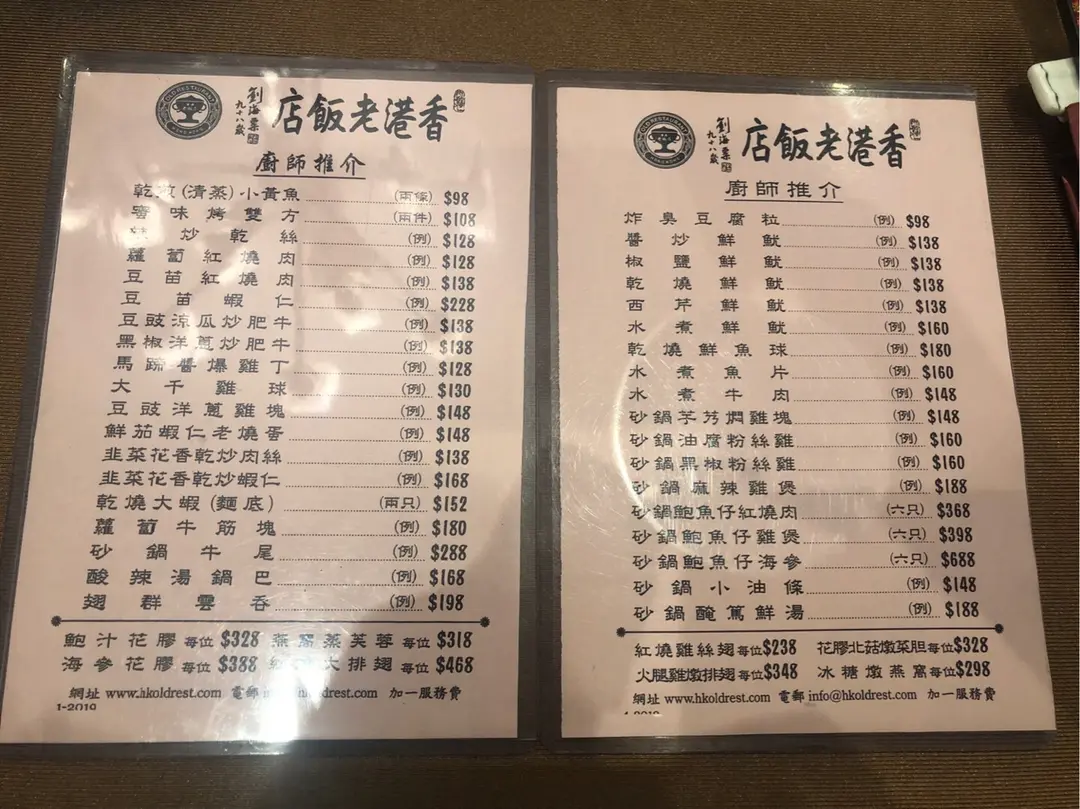 香港老飯店
劉海粟
九十八歲
廚師推介
乾煎(清蒸)小黃魚 (兩條) $98
蜜味烤雙方 (兩件) $108
炒乾絲 (例) $128
蘿蔔紅燒肉 (例) $128
豆苗紅燒肉 (例) $138
豆苗蝦仁 (例) $228
豆豉涼瓜炒肥牛 (例) $138
黑椒洋蔥炒肥牛 (例) $138
馬蹄醬爆雞丁 (例) $128
大千雞球 (例) $130
豆豉洋蔥雞塊 (例) $148
鮮茄蝦仁老燒蛋 (例) $148
韭菜花香乾炒肉絲 (例) $138
韭菜花香乾炒蝦仁 (例) $168
乾燒大蝦(麵底) (兩只) $152
蘿蔔牛筋塊 (例) $180
砂鍋牛尾 (例) $288
酸辣湯鍋巴 (例) $168
翅群雲吞 (例) $198
鮑汁花膠 每位 $328 燕窩蒸芙蓉 每位 $318
海參花膠 每位 $388 大排翅 每位 $468
網址 www.hkoldrest.com 電郵 info@hkoldrest.com 加一服務費
1-2019
香港老飯店
劉海粟
九十八歲
廚師推介
炸臭豆腐粒 (例) $98
醬炒鮮魷 (例) $138
椒鹽鮮魷 (例) $138
乾燒鮮魷 (例) $138
西芹鮮魷 (例) $138
水煮鮮魷 (例) $160
乾燒鮮魚球 (例) $180
水煮魚片 (例) $160
水煮牛肉 (例) $148
砂鍋芋艿燜雞塊 (例) $148
砂鍋油腐粉絲雞 (例) $160
砂鍋黑椒粉絲雞 (例) $160
砂鍋麻辣雞煲 (例) $188
砂鍋鮑魚仔紅燒肉 (六只) $368
砂鍋鮑魚仔雞煲 (六只) $398
砂鍋鮑魚仔海參 (六只) $688
砂鍋小油條 (例) $148
砂鍋醃篤鮮湯 (例) $188
紅燒雞絲翅 每位 $238 花膠北菇燉菜胆 每位 $328
火腿雞燉排翅 每位 $348 冰糖燉燕窩 每位 $298
網址 www.hkoldrest.com 電郵 info@hkoldrest.com 加一服務費